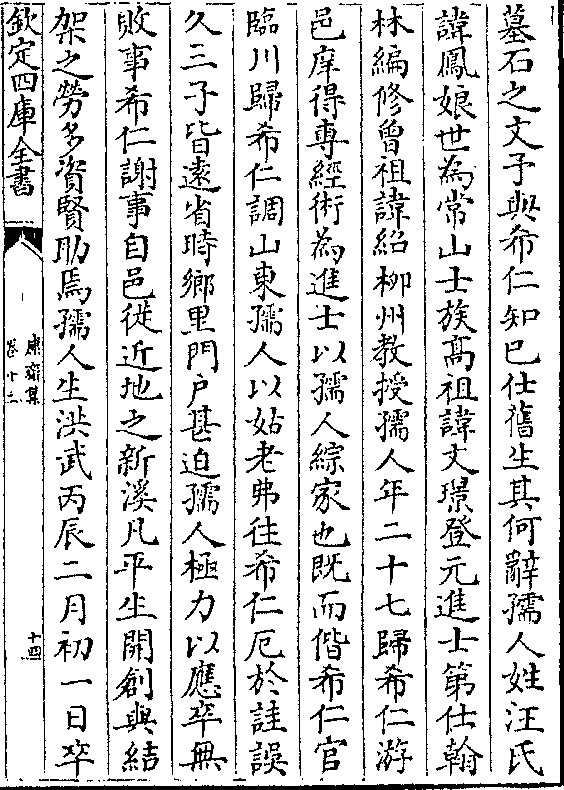 墓石之文予與希仁知巳仕舊生其何辭孺人姓汪氏
諱鳳娘世為常山士族髙祖諱文璟登元進士第仕翰
林編修曾祖諱紹柳州教授孺人年二十七歸希仁游
邑庠得專經術為進士以孺人綜家也既而偕希仁官
臨川歸希仁調山東孺人以姑老弗往希仁厄於詿誤
久三子皆遠省時鄉里門户甚迫孺人極力以應卒無
敗事希仁謝事自邑徙近地之新溪凡平生開創與結
架之勞多資賢助焉孺人生洪武丙辰二月初一日卒
欽定四庫全書
康齋集
卷十二
十四